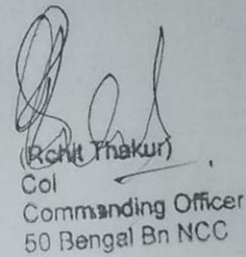 (Rohit Thakur)
Col
Commanding Officer
50 Bengal Bn NCC